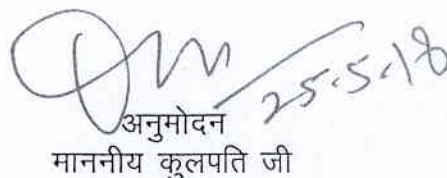 25-5-18
अनुमोदन
माननीय कुलपति जी